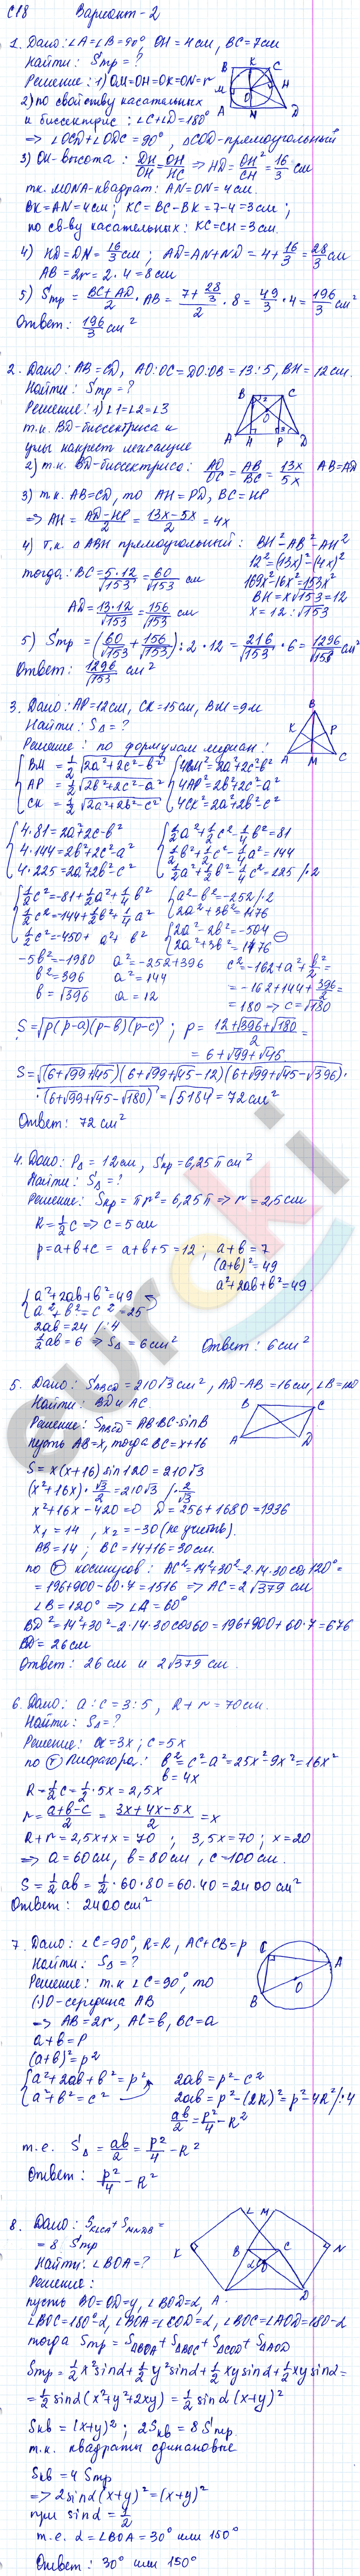 С18 Вариант-2
1. Дано: ∠A=∠B=90°, OH=4см, BC=7см
Найти: Sтр=?
Решение: 1) OM=OH=OK=ON=r
2) по свойству касательных
и биссектрис: ∠C+∠D=180°
⇒ ∠OCD+∠ODC=90°, △COD-прямоугольный
3) OH-высота: DH/OH=OH/HC ⇒ HD=OH²/CH=16/3 см
т.к. MONA-квадрат: AN=ON=4см.
BK=AN=4см; KC=BC-BK=7-4=3см;
по св-ву касательных: KC=CH=3см.
4) HD=DN=16/3 см; AD=AN+ND=4+16/3=28/3 см
AB=2r=2·4=8см
5) Sтр=(BC+AD)/2·AB=(7+28/3)/2·8=49/3·4=196/3 см²
Ответ: 196/3 см²
2. Дано: AB=CD, AO:OC=DO:OB=13:5, BH=12см.
Найти: Sтр=?
Решение: 1) ∠1=∠2=∠3
т.к. BD-биссектриса и
углы накрест лежащие
2) т.к. BD-биссектриса: AO/OC=AB/BC=13x/5x AB=AD
3) т.к. AB=CD, то AH=PD, BC=HP
⇒ AH=(AD-HP)/2=(13x-5x)/2=4x
4) т.к. △ABH прямоугольный: BH²=AB²-AH²
12²=(13x)²-(4x)²
169x²-16x²=153x²
BH=x√153=12
x=12:√153
тогда: BC=5·12/√153=60/√153 см
AD=13·12/√153=156/√153 см
5) Sтр=(60/√153+156/√153):2·12=216/√153·6=1296/√153 см²
Ответ: 1296/√153 см²
3. Дано: AP=12см, CK=15см, BM=9м
Найти: S△=?
Решение: по формулам медиан:
{BM=1/2√(2a²+2c²-b²) {4BM²=2a²+2c²-b²
AP=1/2√(2b²+2c²-a²) 4AP²=2b²+2c²-a²
CK=1/2√(2a²+2b²-c²) 4CK²=2a²+2b²-c²
{4·81=2a²+2c-b² {1/2a²+1/2c²-1/4b²=81
4·144=2b²+2c²-a² 1/2b²+1/2c²-1/4a²=144
4·225=2a²+2b²-c² 1/2a²+1/2b²-1/4c²=225 /·2
{1/2c²=-81+1/2a²+1/4b² {a²-b²=-252/·2
1/2c²=-144+1/2b²+1/4a² 2a²+3b²=1476
1/2c²=-450+a²+b² {2a²-2b²=-504
2a²+3b²=1476
-5b²=-1980 a²=-252+396 c²=-162+a²+b²/2=
b²=396 a²=144 =-162+144+396/2=
b=√396 a=12 =180 → c=√180
S=√(p(p-a)(p-b)(p-c)); p=(12+√396+√180)/2=
=6+√99+√45
S=√((6+√99+√45)(6+√99+√45-12)(6+√99+√45-√396)·
·(6+√99+√45-√180))=√5184=72см²
Ответ: 72см²
4. Дано: P△=12см, Sкр=6,25π см²
Найти: S△=?
Решение: Sкр=πr²=6,25π ⇒ r=2,5см
R=1/2c ⇒ c=5см
p=a+b+c=a+b+5=12; a+b=7
(a+b)²=49
a²+2ab+b²=49.
{a²+2ab+b²=49
a²+b²=c²=25
2ab=24 /:4
1/2ab=6 ⇒ S△=6см² Ответ: 6см²
5. Дано: SABCD=210√3см², AD-AB=16см, ∠B=120
Найти: BD и AC.
Решение: SABCD=AB·BC·sinB
пусть AB=x, тогда BC=x+16
S=x(x+16)sin120=210√3
(x²+16x)·√3/2=210√3 /·2/√3
x²+16x-420=0 D=256+1680=1936
x1=14, x2=-30 (не учитыв).
AB=14; BC=14+16=30см.
по Т косинусов: AC²=14²+30²-2·14·30cos120°=
=196+900-60·7=1516 ⇒ AC=2√379 см
∠B=120° ⇒ ∠A=60°
BD²=14²+30²-2·14·30cos60=196+900+60·7=676
BD=26см
Ответ: 26см и 2√379 см.
6. Дано: a:c=3:5, R+r=70см.
Найти: S△=?
Решение: a=3x; c=5x
по Т Пифагора: b²=c²-a²=25x²-9x²=16x²
b=4x
R=1/2c=1/2·5x=2,5x
r=(a+b-c)/2=(3x+4x-5x)/2=x
R+r=2,5x+x=70; 3,5x=70; x=20
⇒ a=60см, b=80см, c=100см.
S=1/2ab=1/2·60·80=60·40=2400см²
Ответ: 2400см²
7. Дано: ∠C=90°, R=R, AC+CB=p
Найти: S△=?
Решение: т.к ∠C=90°, то
(·)O-середина AB
⇒ AB=2r, AC=b, BC=a
a+b=P
(a+b)²=p²
{a²+2ab+b²=p² 2ab=p²-c²
a²+b²=c² 2ab=p²-(2R)²=p²-4R²/:4
ab/2=p²/4-R²
т.е. S△=ab/2=p²/4-R²
Ответ: p²/4-R²
8. Дано: SKLCA+SMNDB=
=8 Sтр
Найти: ∠BOA=?
Решение:
пусть BO=OD=y, ∠BOD=α, A
∠BOC=180°-α, ∠BOA=∠COD=α, ∠BOC=∠AOD=180-α
тогда Sтр=S△BOA+S△BOC+S△COD+S△AOD
Sтр=1/2x²sinα+1/2y²sinα+1/2xysinα+1/2xysinα=
=1/2sinα(x²+y²+2xy)=1/2sinα(x+y)²
Sкв=(x+y)²; 2Sкв=8Sтр
т.к. квадраты одинаковые
Sкв=4Sтр
⇒ 2sinα(x+y)²=(x+y)²
при sinα=1/2
т.е. α=∠BOA=30° или 150°
Ответ: 30° или 150°